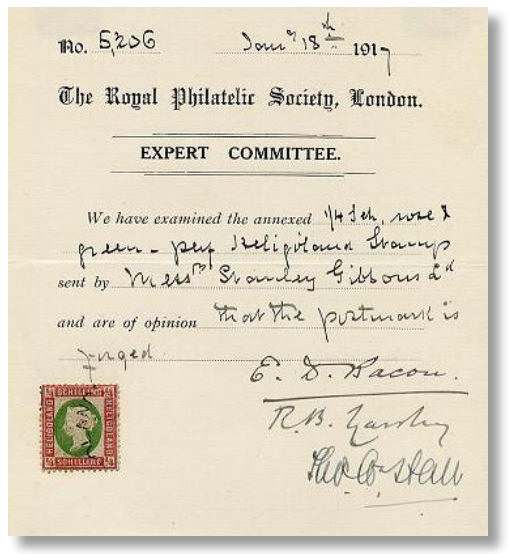 No. 5,206 Jany 18th 1917
The Royal Philatelic Society, London.
EXPERT COMMITTEE.
We have examined the annexed 1/4 Sch, rose &
green - perf Heligoland Stamp
sent by Messrs Stanley Gibbons Ld
and are of opinion that the postmark is
forged.
E. D. Bacon.
R. B.
Hall
SCHILLING
HELIGOLAND
HELIGOLAND
SCHILLING